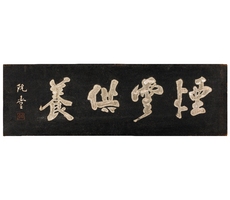 煙雲供養
阮堂